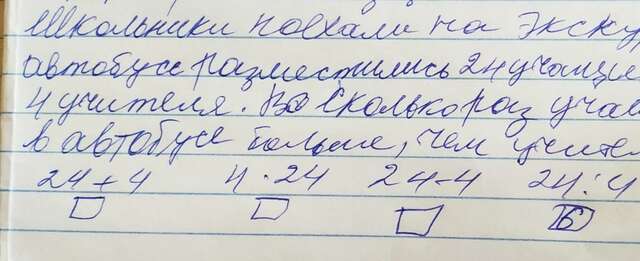 Школьники поехали на экску
автобусе разместились 24 учаще
4 учителя. Во сколько раз учащ
в автобусе больше, чем учите
24 + 4 4 · 24 24 - 4 24 : 4
6